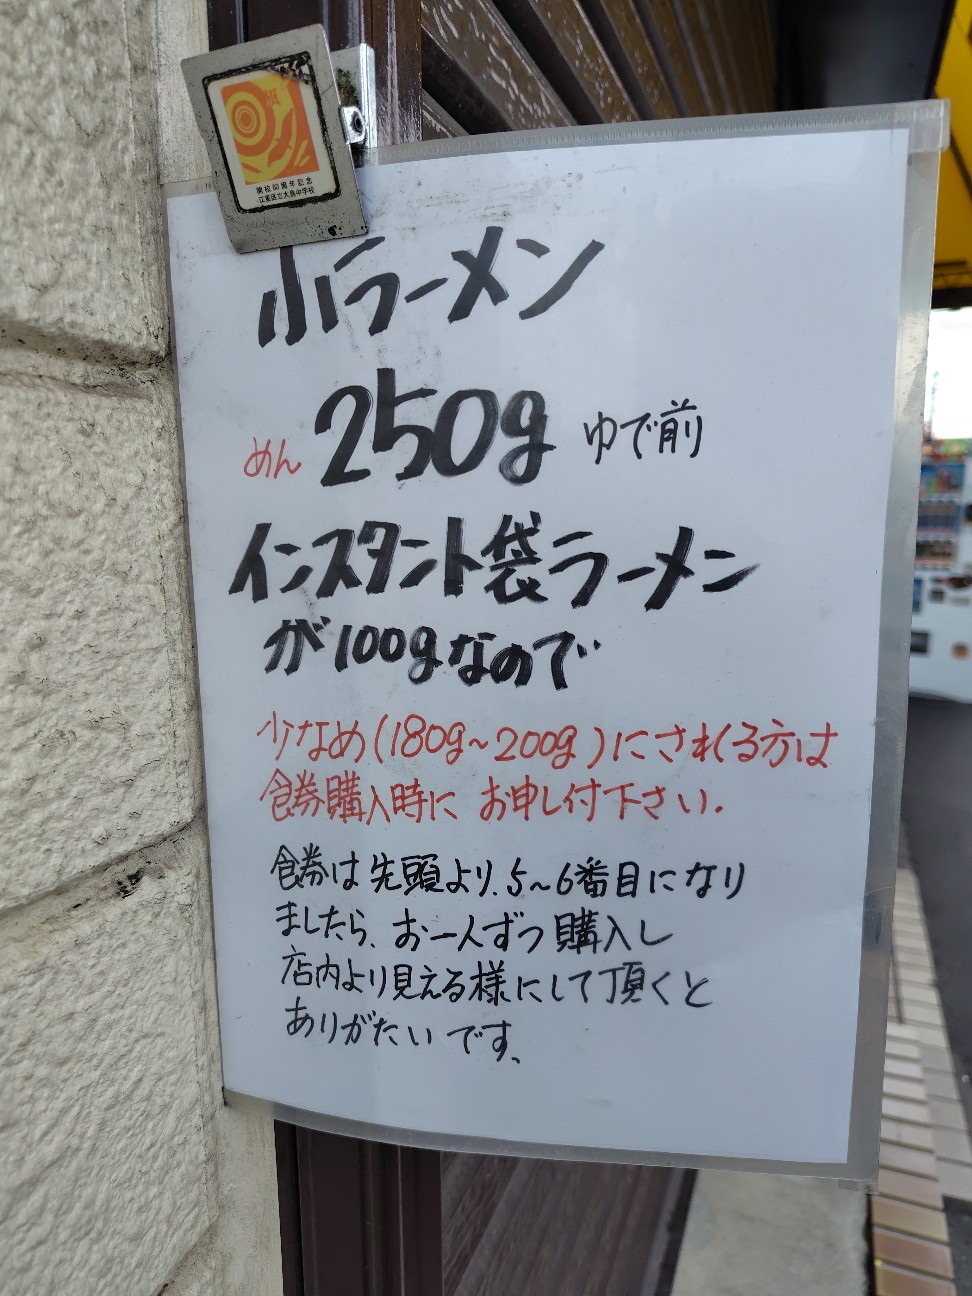 開校60周年記念
江東区立大島中学校
小ラーメン
めん 250g ゆで前
インスタント袋ラーメン
が100gなので
少なめ(180g~200g)にされる方は
食券購入時に お申し付下さい.
食券は先頭より、5~6番目になり
ましたら、お一人ずつ購入し
店内より見える様にして頂くと
ありがたいです、